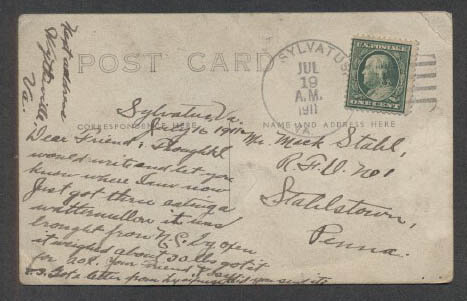 Next address
Wytheville,
Va.
POST CARD
SYLVATUS
JUL
19
A.M.
1911
VA.
U.S. POSTAGE
ONE CENT
CORRESPONDENCE HERE
NAME AND ADDRESS HERE
Sylvatus, Va.
July 16 1911.
Dear Friend; Thought I
would write and let you
know where I am now
Just got three eating a
wattermullon it was
brought from N.C. by oxen
it weighed about 30 lbs got it
for 20¢. Your friend
P.S. Got a letter from and you sent it
Mr. Mick Stahl,
R.F.D. No 1
Stahlstown,
Penna.